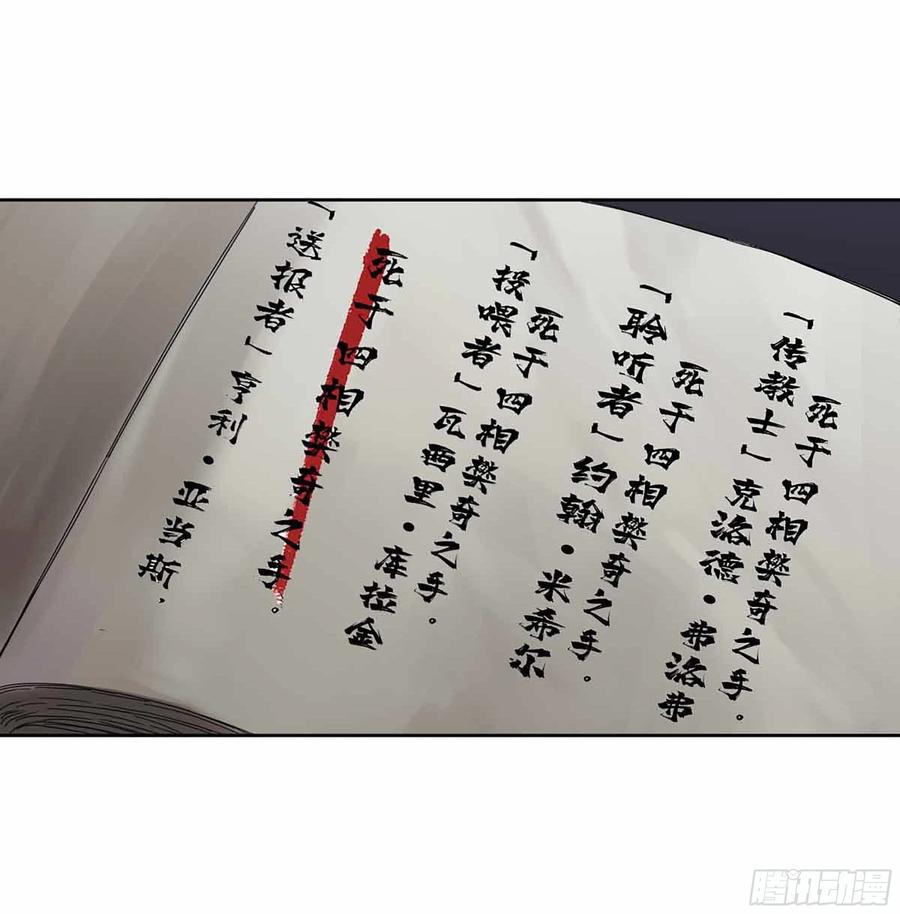 「传教士」克洛德·弗洛弗
死于四相樊奇之手。
「聆听者」约翰·米希尔
死于四相樊奇之手。
「投喂者」瓦西里·库拉金
死于四相樊奇之手。
「送报者」亨利·亚当斯，
死于四相樊奇之手。
腾讯动漫